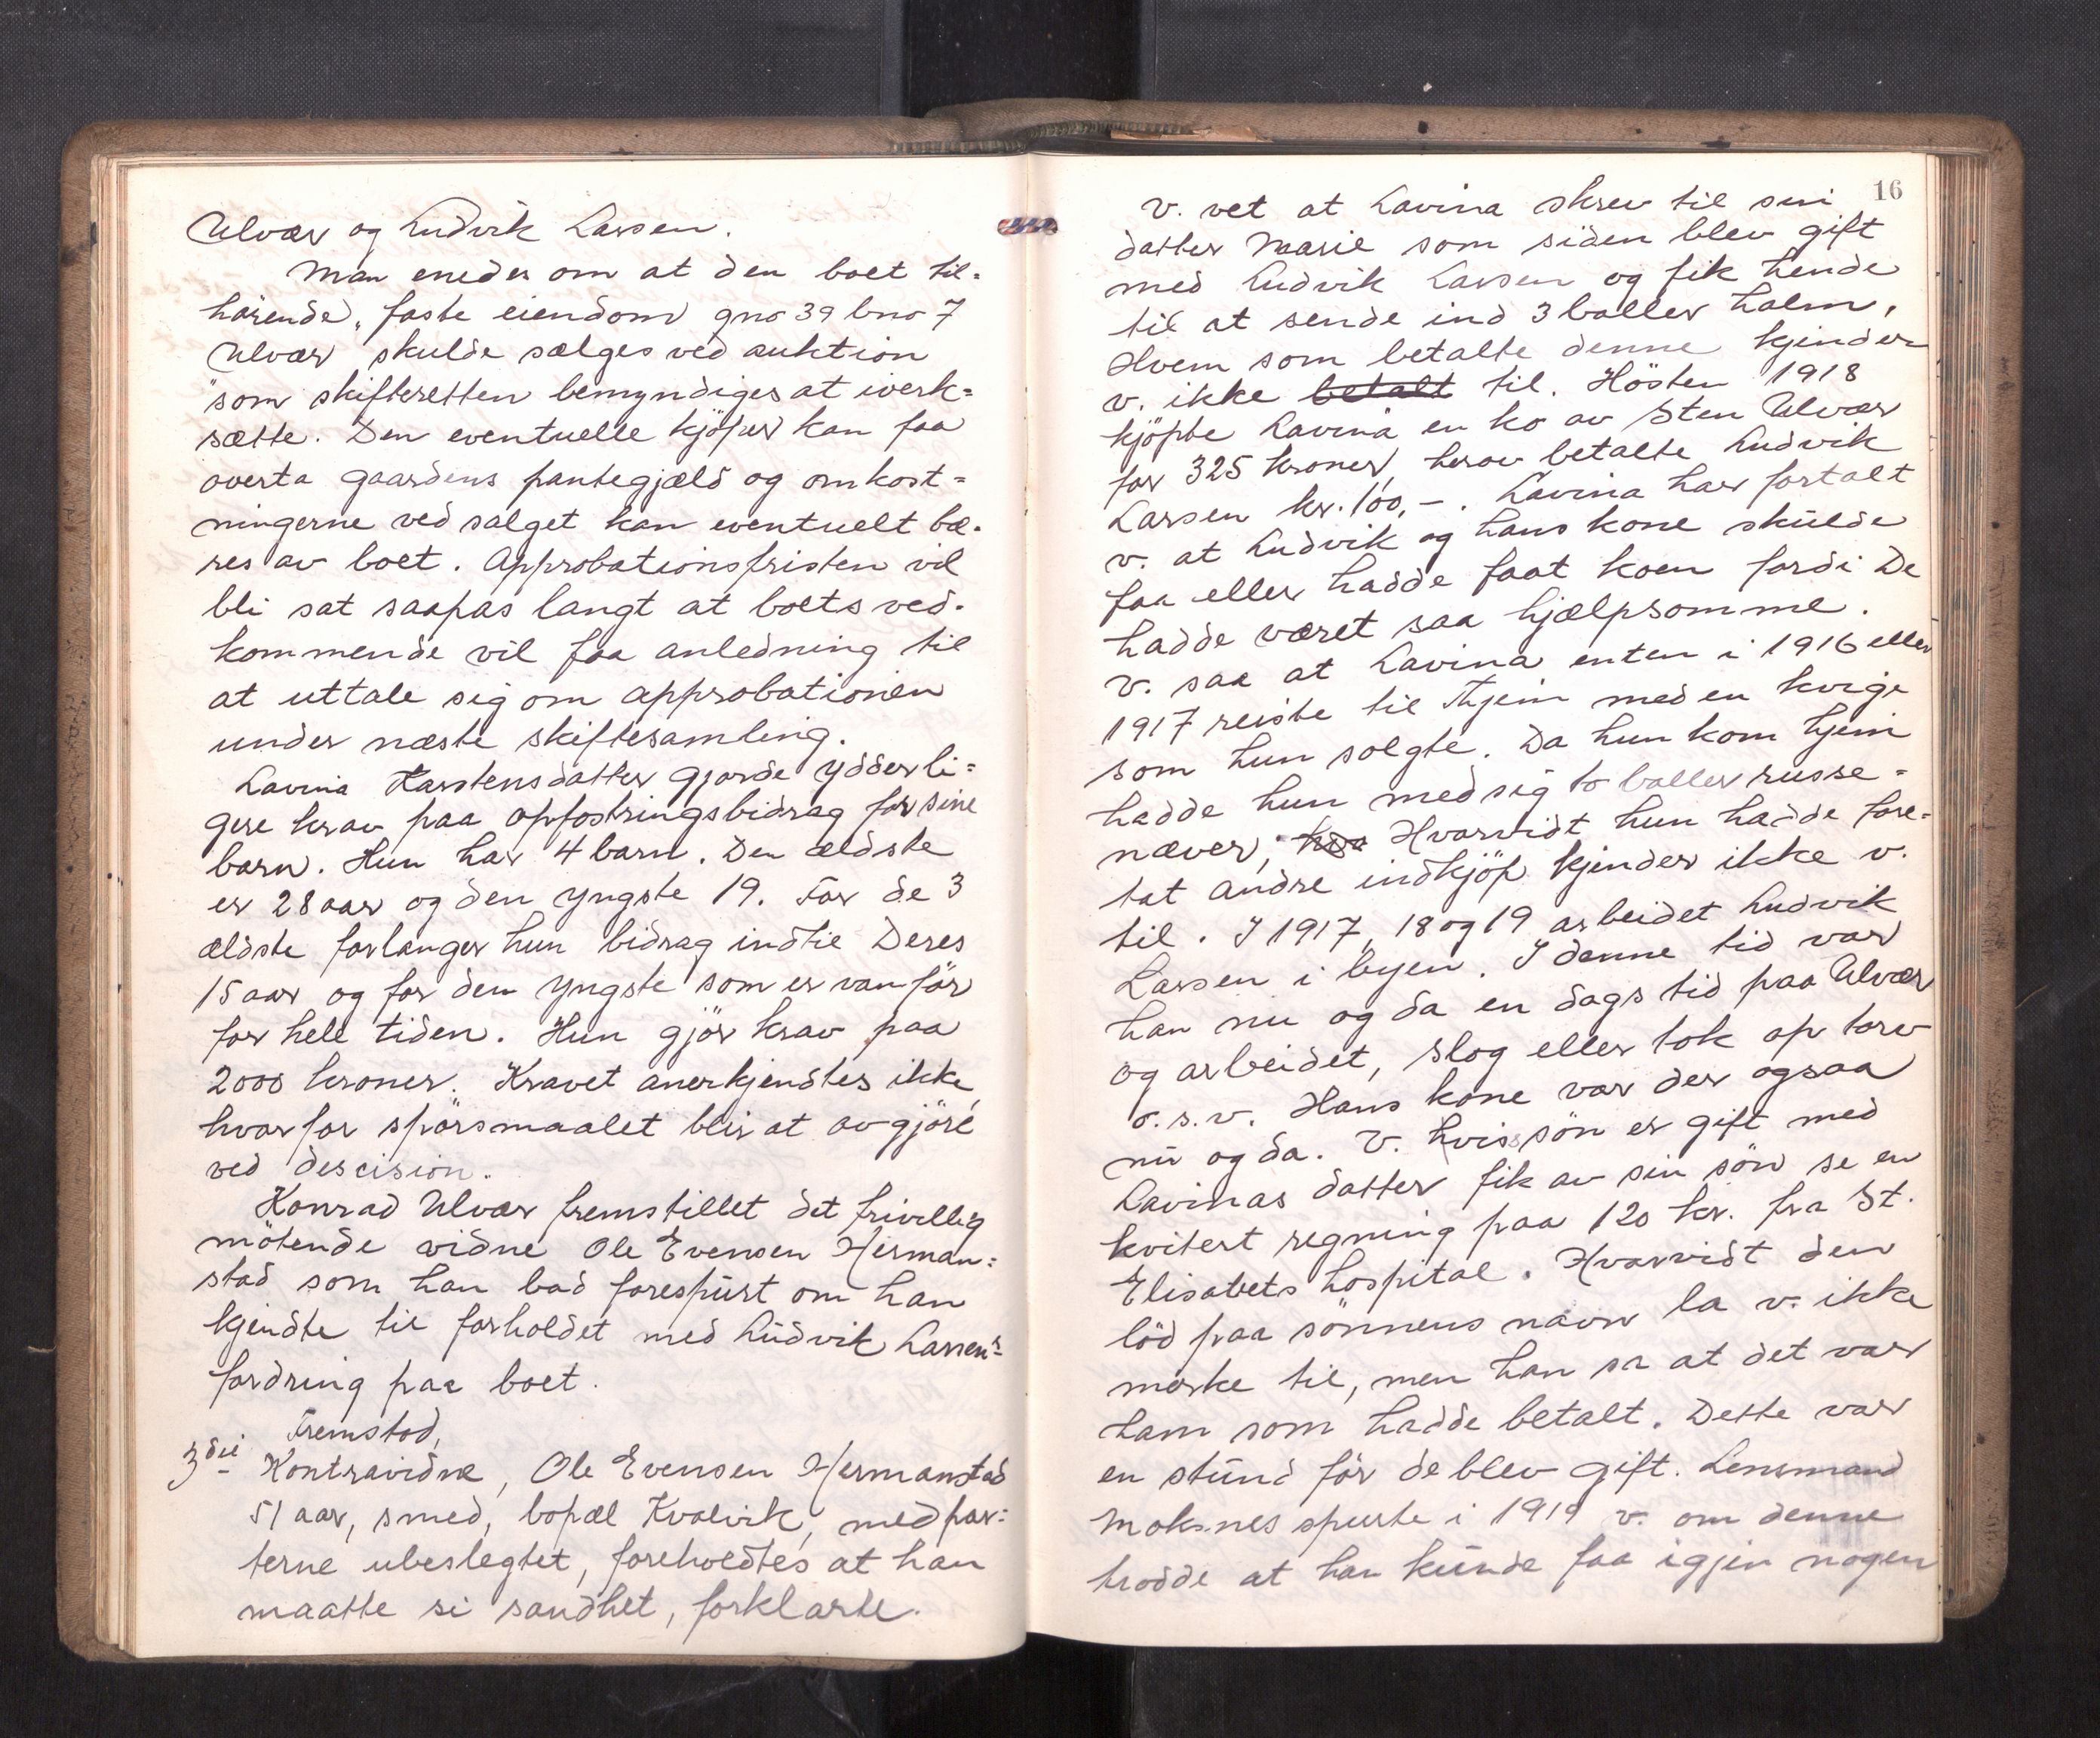 Ulvær og Ludvik Larsen.
Man enedes om at den boet til-
hørende, faste eiendom gno 39 bno 7
Ulvær skulde sælges ved auktion
som skifteretten bemyndiges at iverk=
sætte. Den eventuelle kjöper kan faa
overta gaardens pantegjæld og omkost=
ningerne ved salget kan eventuelt bæ-
res av boet. Approbationsfristen vil
bli sat saapas langt at boets ved-
kommende vil faa anledning til
at uttale sig om approbationen
under næste skiftesamling.
Lavina Karstensdatter gjorde ydderli=
gere krav paa opfostringsbidrag for sine
barn. Hun har 4 barn. Den ældste
er 28 aar og den yngste 19. For de 3
ældste forlanger hun bidrag indtil Deres
15 aar og for den yngste som er vanför
for hele tiden. Hun gjör krav paa
2000 kroner. Kravet anerkjendtes ikke,
hvorfor spörsmaalet blir at avgjöre
ved descision.
Konrad Ulvær fremstillet det frivillig
mötende vidne Ole Evensen Herman=
stad som han bad forespurt om han
kjendte til forholdet med Ludvik Larsens
fordring paa boet.
Fremstod,
3die Kontravidne, Ole Evensen Hermanstad
51 aar, smed, bopæl Kvalvik, med par=
terne ubeslegtet, foreholdtes at han
maatte si sandhet, forklarte.
16
V. vet at Lavina skrev til sin
datter Marie som siden blev gift
med Ludvik Larsen og fik hende
til at sende ind 3 baller halm.
Hvem som betalte denne kjender
v. ikke betalt til. Hösten 1918
kjöpte Lavina en ko av Sten Ulvær
for 325 kroner, herav betalte Ludvik
Larsen kr. 100,-. Lavina har fortalt
v. at Ludvik og hans kone skulde
faa eller hadde faat koen fordi De
hadde været saa hjælpsomme.
v. saa at Lavina enten i 1916 eller
1917 reiste til Thjem med en kvige
som hun solgte. Da hun kom hjem
hadde hun med sig to baller russe=
næver, Hvorvidt hun hadde fore=
tat andre indkjöp kjender ikke v.
til. I 1917, 18 og 19 arbeidet Ludvik
Larsen i byen. I denne tid var
han nu og da en dags tid paa Ulvær
og arbeidet, slog eller tok op torv
o.s.v. Hans kone var der ogsaa
nu og da. V. hvis sön er gift med
Lavinas datter fik av sin sön se en
kvitert regning paa 120 kr. fra St.
Elisabets hospital. Hvorvidt den
löd paa sönnens navn la v. ikke
merke til, men han sa at det var
ham som hadde betalt. Dette var
en stund för de blev gift. Lensmand
Moksnes spurte i 1919 v. om denne
trodde at han kunde faa igjen nogen